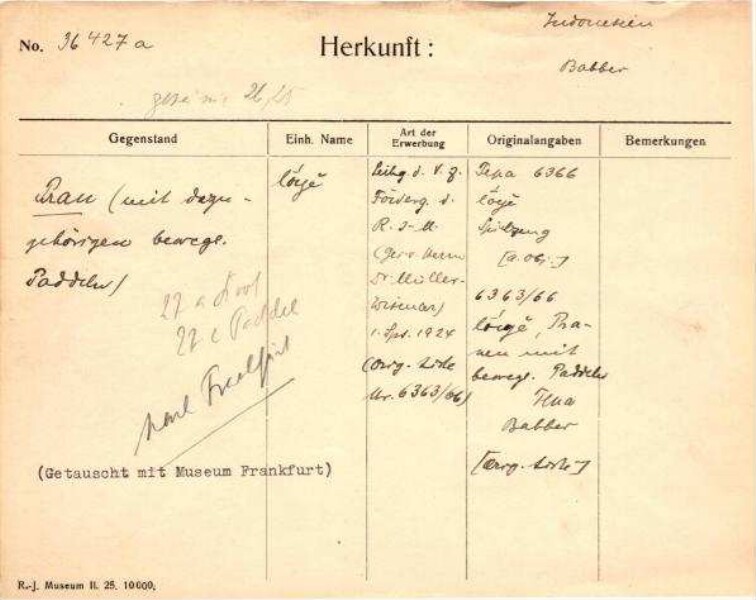 No. 36427a
Herkunft:
Indonesien
Babber
26/25
Gegenstand
Einh. Name
Art der Erwerbung
Originalangaben
Bemerkungen
Prau (mit dazu-
gehörigen bewegl.
Paddeln)
27 a Boot
27 c Paddel
nach Frankfurt
(Getauscht mit Museum Frankfurt)
löyĕ
Leihg. d. V. z.
Förderg. d.
R.-J.-M.
(Herrn
Dr. Müller-
Wismar)
1. Sps. 1924
(Orig. Liste
Nr. 6363/66)
Tepa 6366
löyĕ
Spielzeug
[a. Obj.]
6363/66
löyĕ, Prau-
en mit
bewegl. Paddeln
Tepa
Babber
[Orig. Liste]
R.-J. Museum II. 25. 10000.